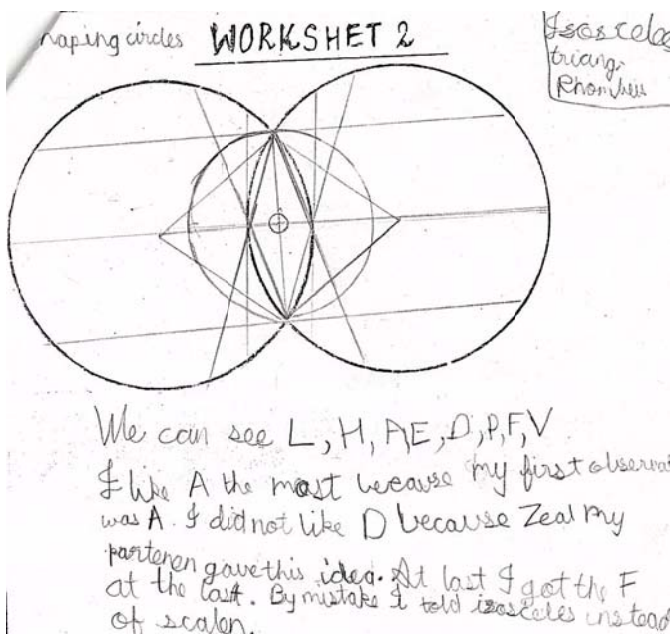 haping circles WORKSHET 2
Isosceles
triang.
Rhombus
We can see L, H, A, E, D, P, F, V
I like A the most because my first observat
was A. I did not like D because Zeal my
partenen gave this idea. At last I got the F
at the last. By mistake I told isosceles instead
of scalen.